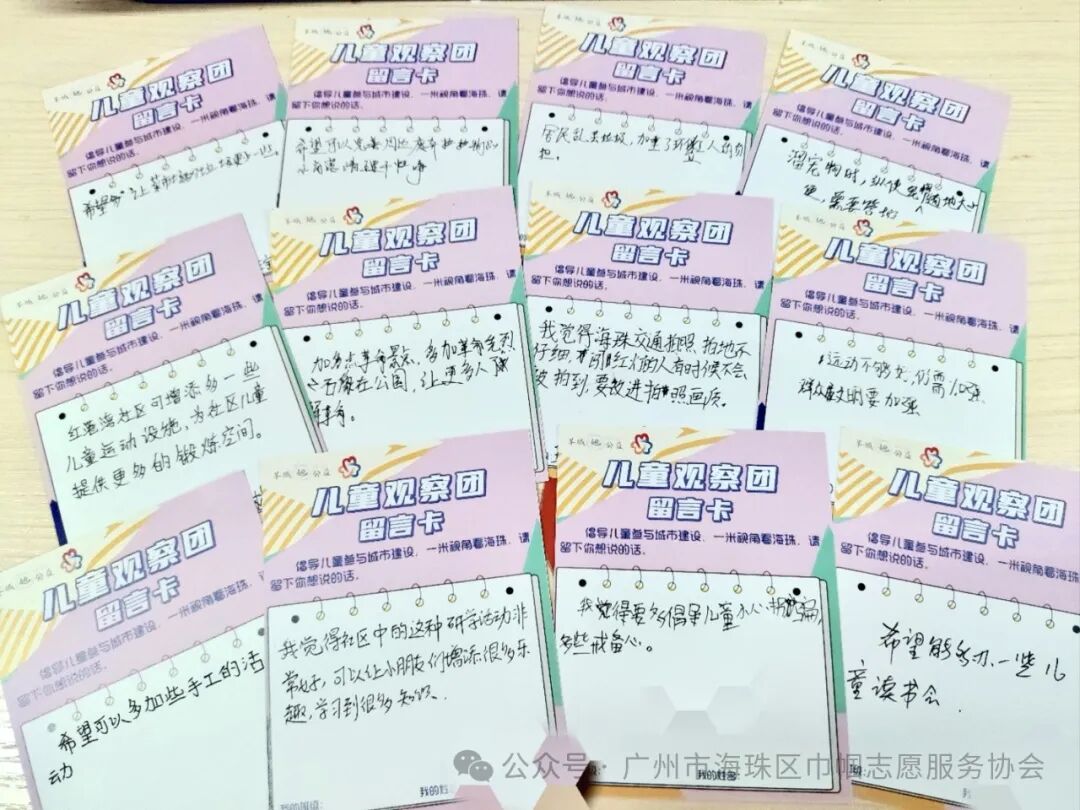 羊城她公益
儿童观察团
留言卡
倡导儿童参与城市建设、一米视角看海珠、请
留下你想说的话。
希望多上
羊城她公益
儿童观察团
留言卡
倡导儿童参与城市建设、一米视角看海珠、请
留下你想说的话。
希望可以完善
羊城她公益
儿童观察团
留言卡
倡导儿童参与城市建设、一米视角看海珠、请
留下你想说的话。
居民乱丢垃圾,加重了环卫工人的负
担。
儿童观察团
留言卡
倡导儿童参与城市建设、一米视角看海珠、请
留下你想说的话。
溜宠物时,纵使宠物随地大小
便,需要管地
羊城她公益
儿童观察团
留言卡
倡导儿童参与城市建设、一米视角看海珠、请
留下你想说的话。
社区可增添多一些
儿童运动设施,为社区儿童
提供更多的锻炼空间。
羊城她公益
儿童观察团
留言卡
倡导儿童参与城市建设、一米视角看海珠、请
留下你想说的话。
加多点革命景点,多加革命先烈
之石像在公园,让更多人了解
革命。
儿童观察团
留言卡
倡导儿童参与城市建设、一米视角看海珠、请
留下你想说的话。
我觉得海珠交通拍照拍地不
仔细,有闯红灯的人有时候不会
被拍到,要改进拍照画质。
羊城她公益
儿童观察团
留言卡
倡导儿童参与城市建设、一米视角看海珠、请
留下你想说的话。
运动不够,仍需加强
群众文明要加强
羊城她公益
儿童观察团
留言卡
倡导儿童参与城市建设、一米视角看海珠、请
留下你想说的话。
希望可以多加些手工的活
动
羊城她公益
儿童观察团
留言卡
倡导儿童参与城市建设、一米视角看海珠、请
留下你想说的话。
我觉得社区中的这种研学活动非
常好,可以让小朋友们增添很多乐
趣,学习到很多知识.
我的班级:
我的姓
羊城她公益
儿童观察团
留言卡
倡导儿童参与城市建设、一米视角看海珠、请
留下你想说的话。
我觉得要多倡导儿童小心拐骗,
多些戒备心。
我的姓名:
羊城她公益
儿童观察团
留言卡
倡导儿童参与城市建设、一米视角看海珠、请
留下你想说的话。
希望能多办一些儿
童读书会.
我
公众号·广州市海珠区巾帼志愿服务协会